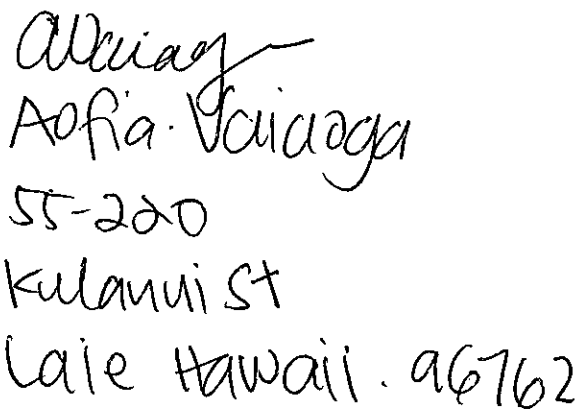 Aofia. Vaiaoga
55-220
Kulanui St
Laie Hawaii. 96762